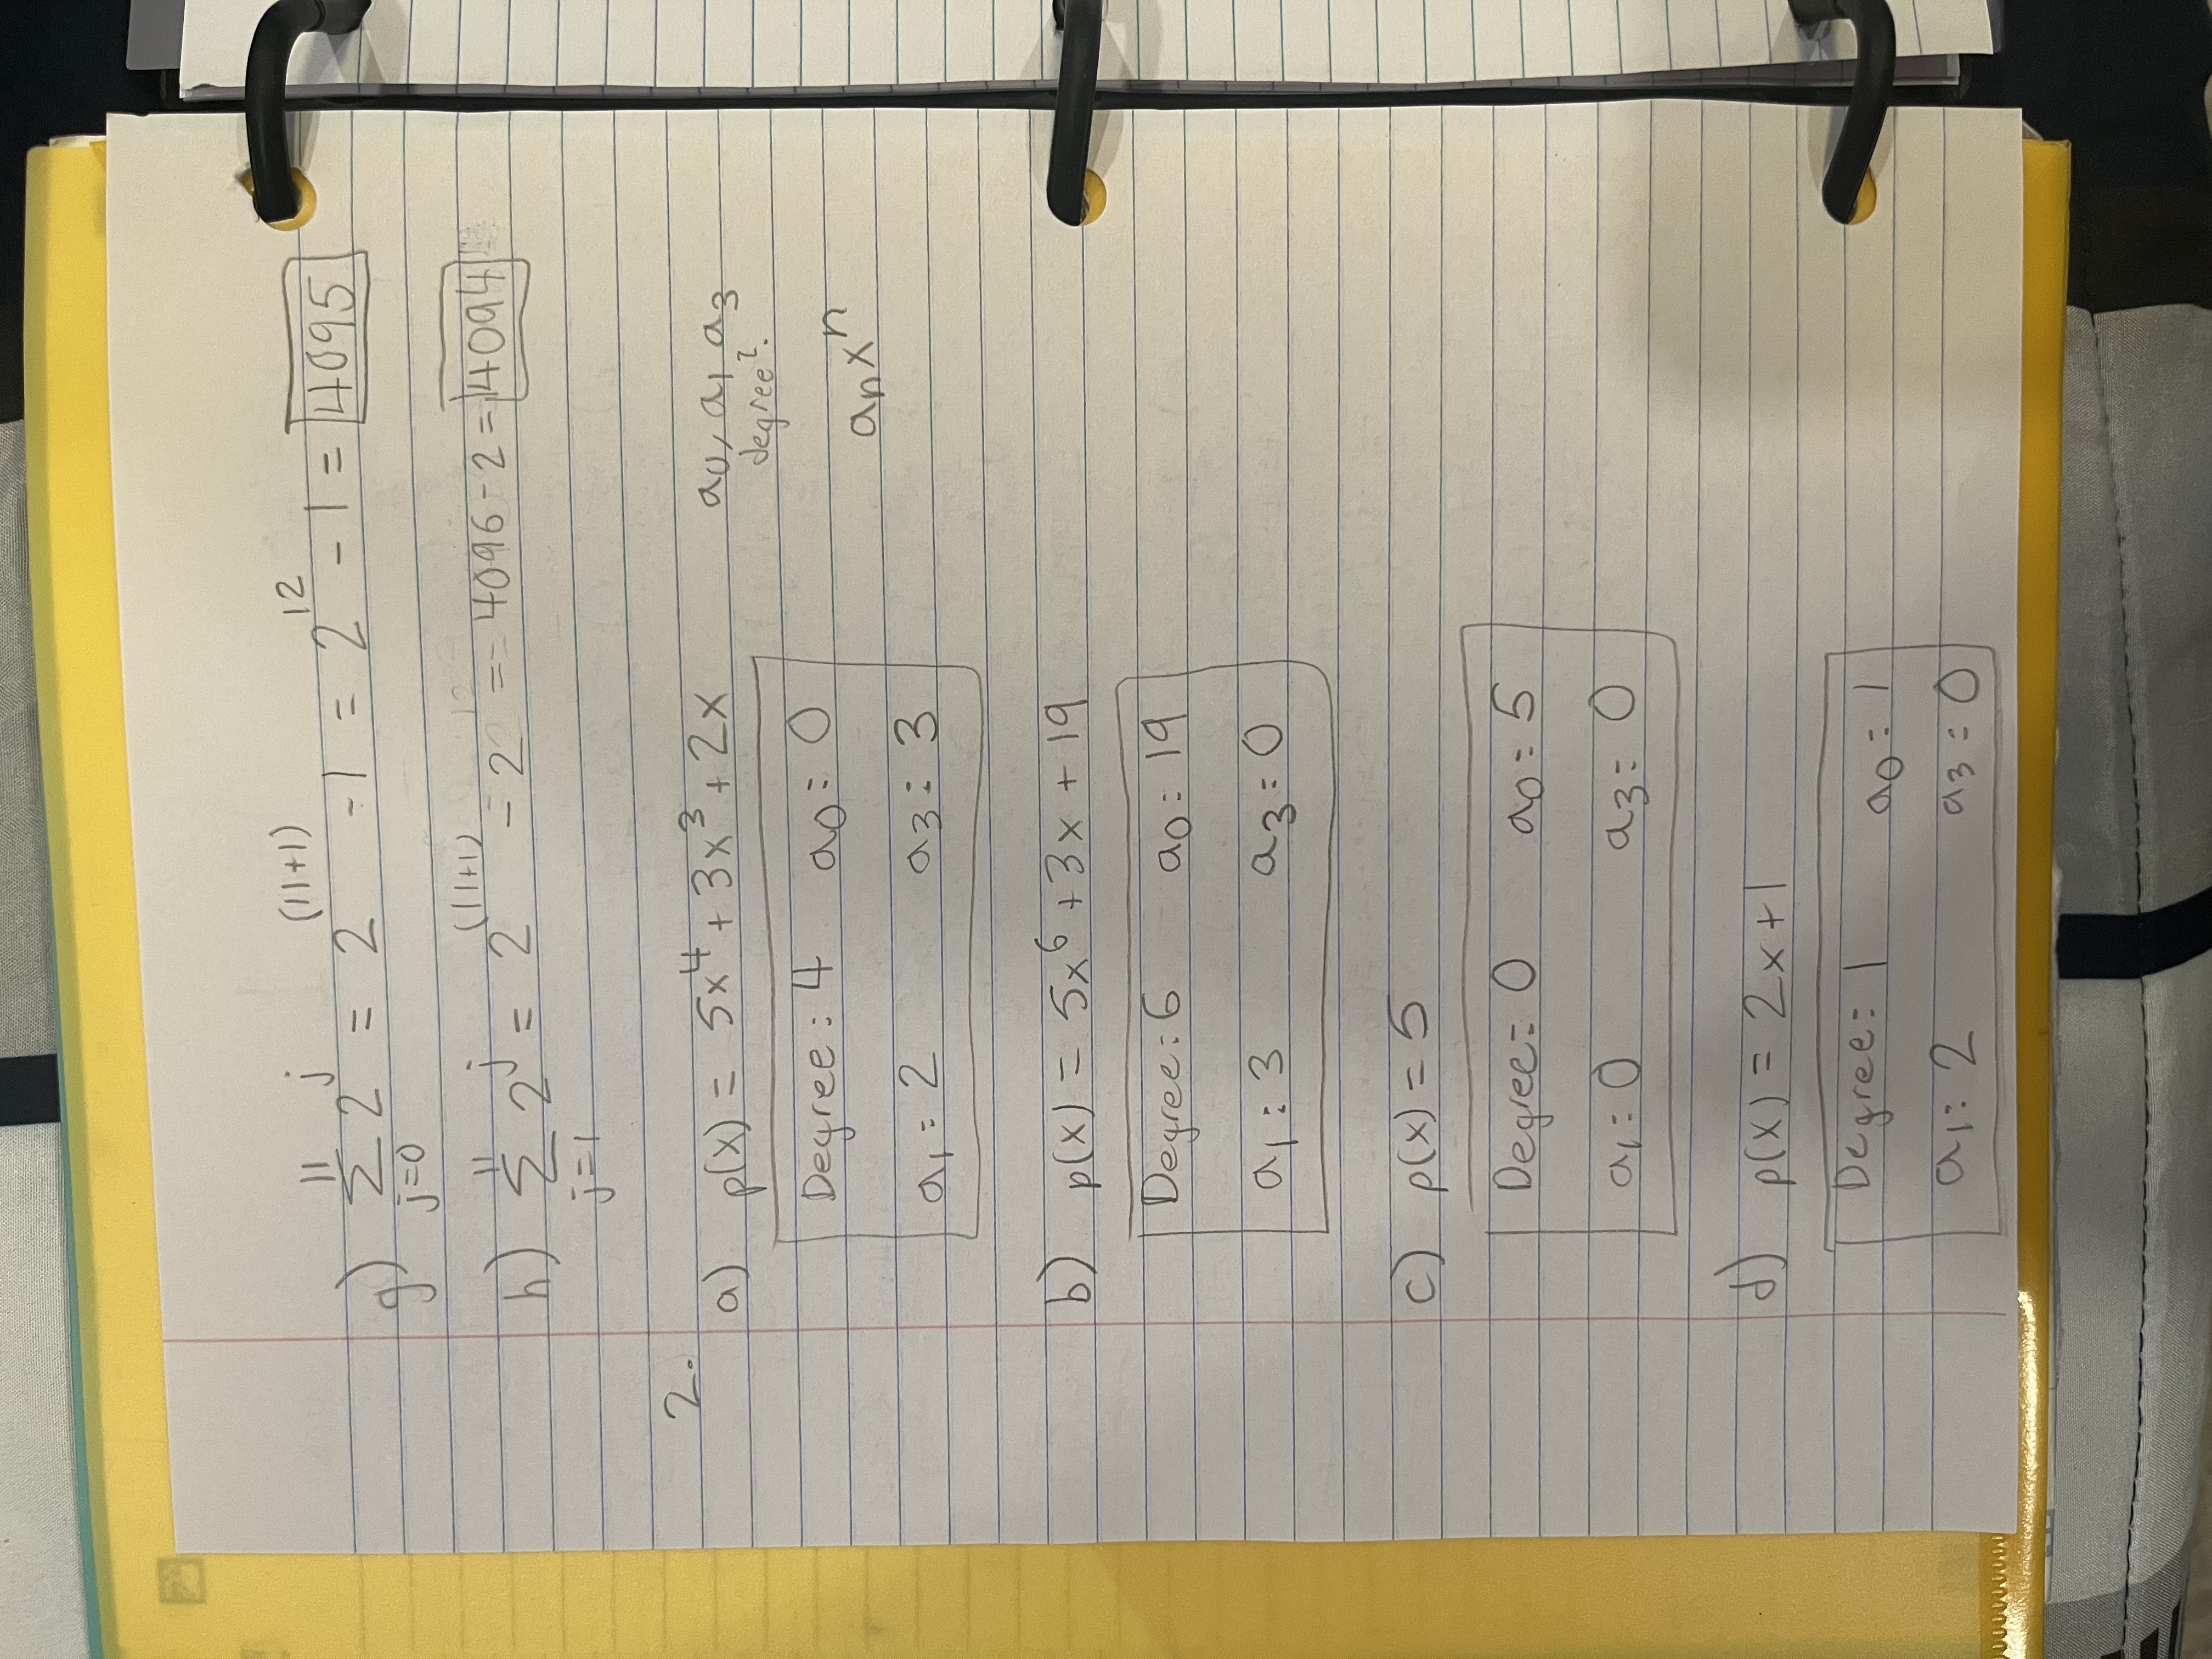 g) $\sum_{j=0}^{11} 2^j = 2^{(11+1)} - 1 = 2^{12} - 1 = 4095$
h) $\sum_{j=1}^{11} 2^j = 2^{(11+1)} - 2 = 4096 - 2 = 4094$
2.
a) p(x) = 5x⁴ + 3x³ + 2x
a₀, a₁ a₃
degree?
aₙxⁿ
Degree: 4 a₀: 0
a₁: 2 a₃: 3
b) p(x) = 5x⁶ + 3x + 19
Degree: 6 a₀: 19
a₁: 3 a₃: 0
c) p(x) = 5
Degree: 0 a₀: 5
a₁: 0 a₃: 0
d) p(x) = 2x + 1
Degree: 1 a₀: 1
a₁: 2 a₃: 0